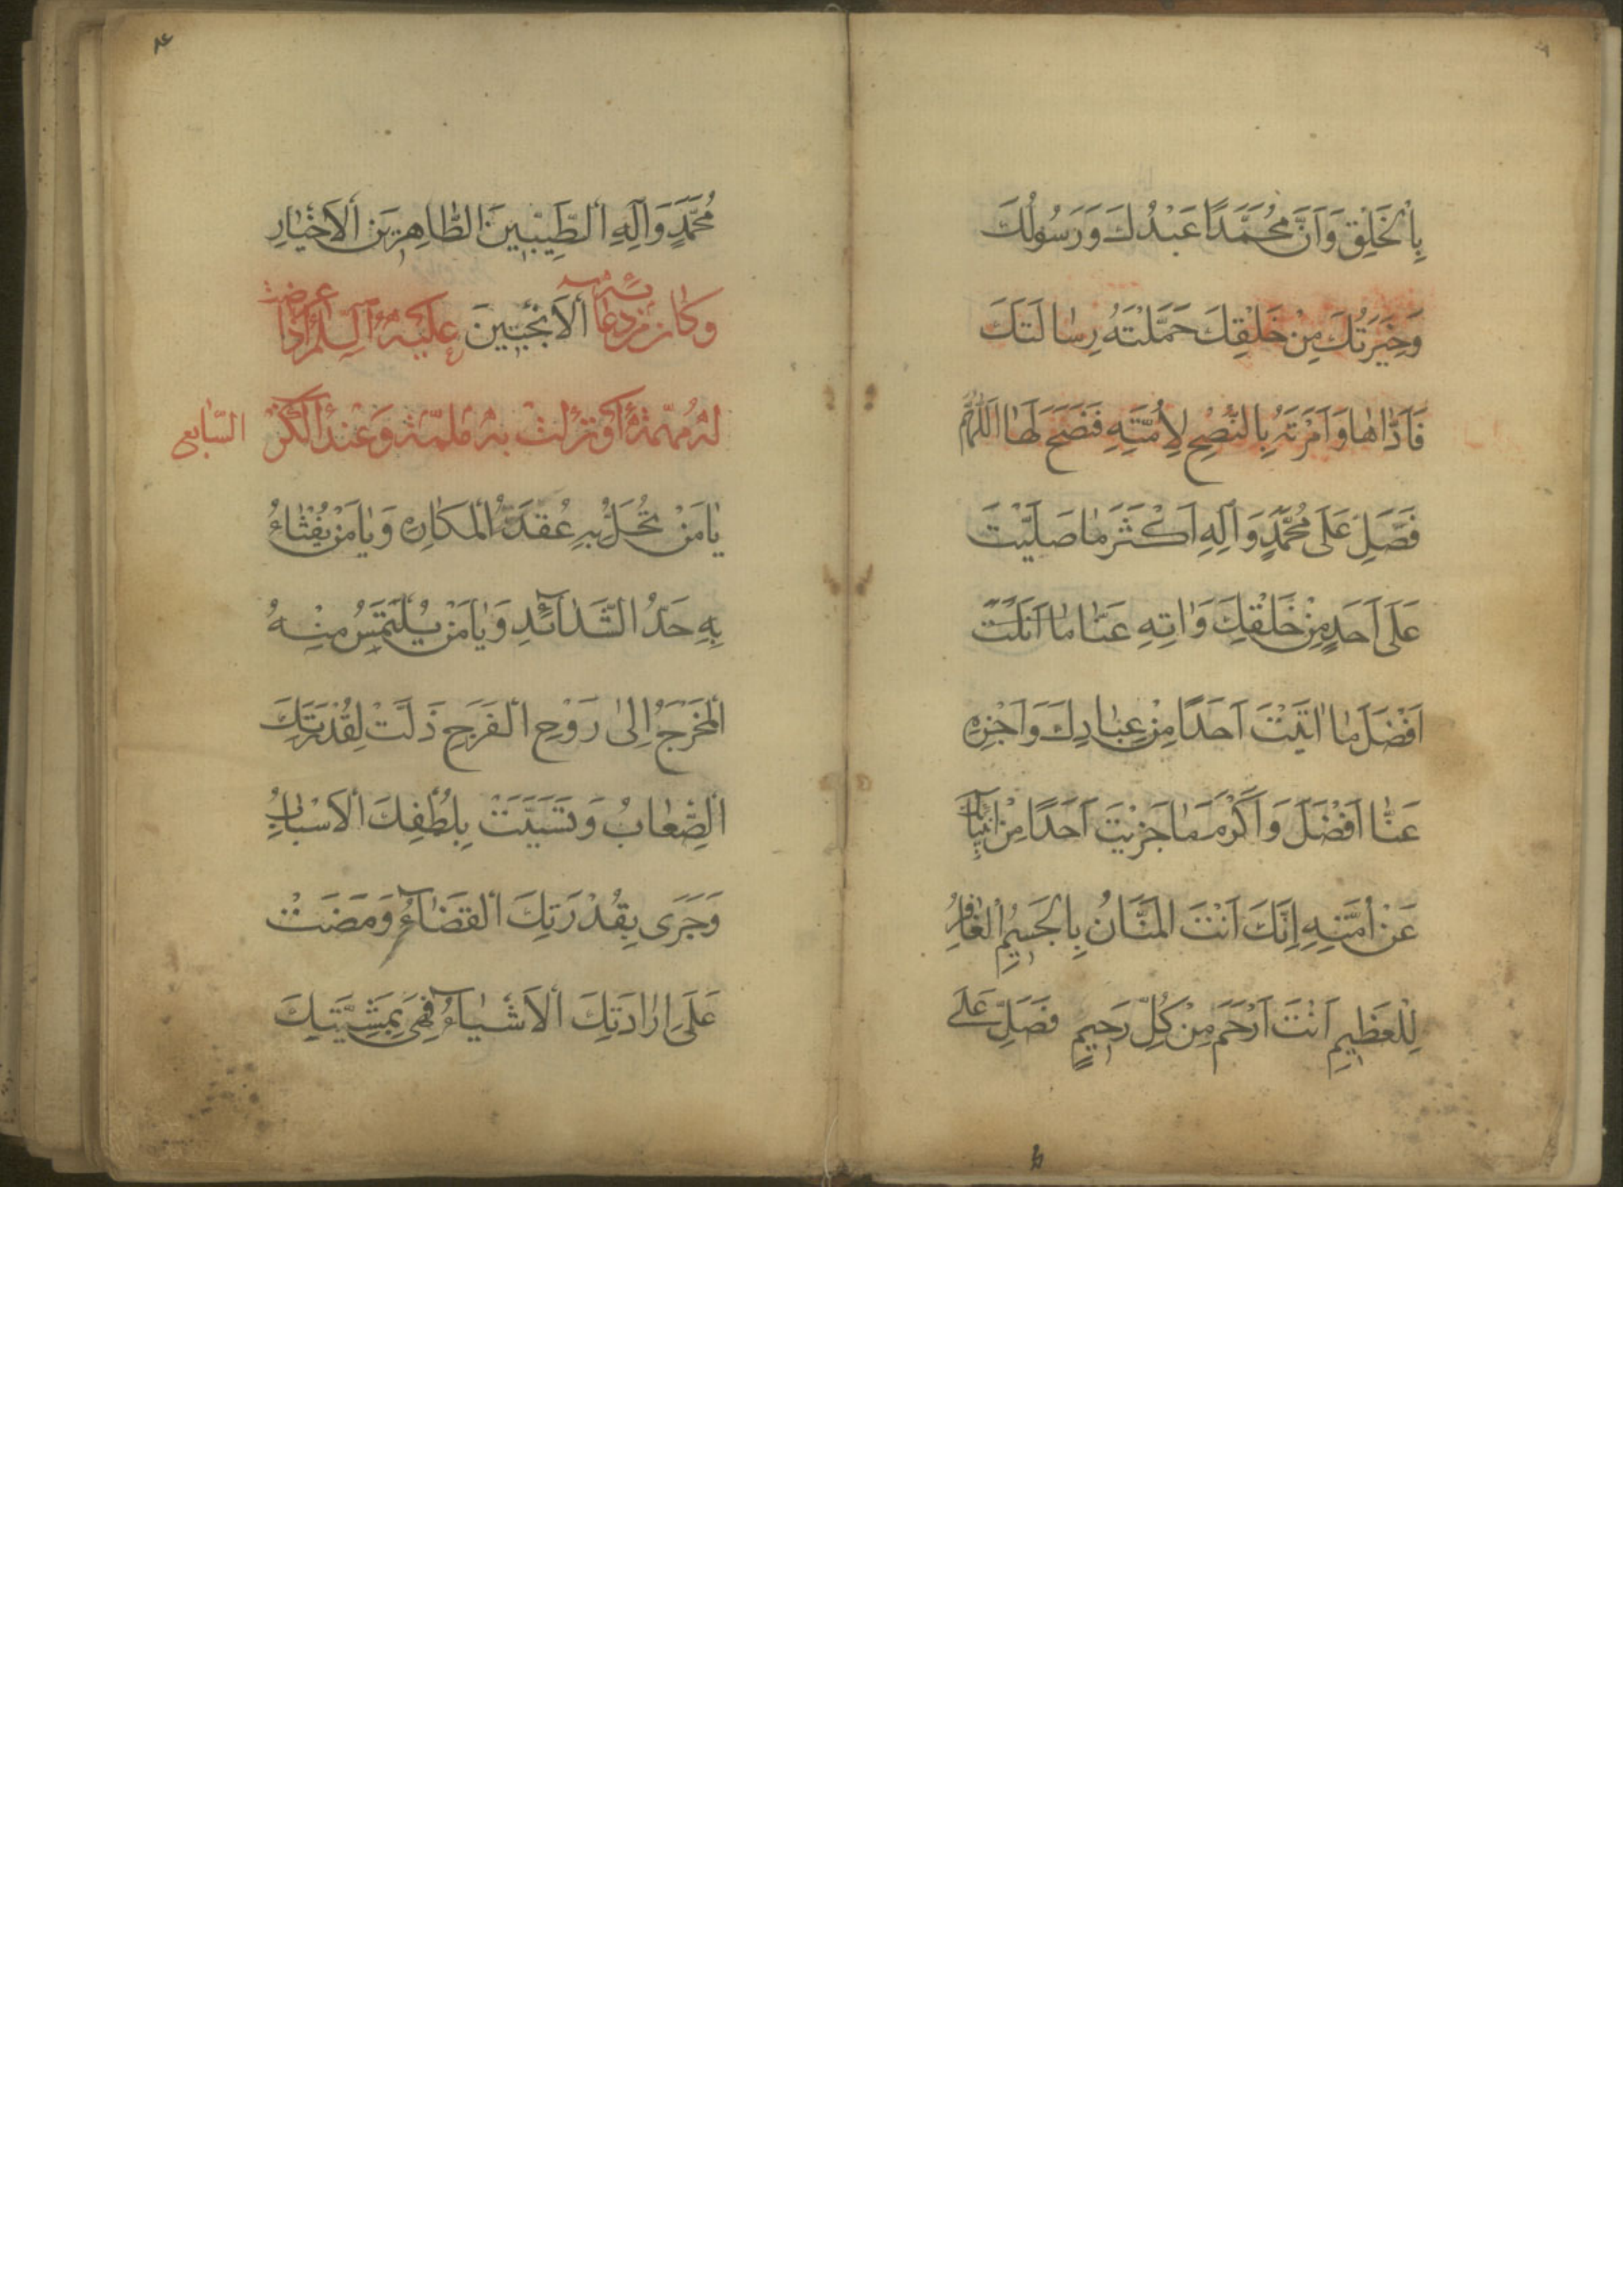 بِالْخَلْقِ وَاَنَّ مُحَمَّدًا عَبْدُكَ وَرَسُولُكَ
وَخِيَرَتُكَ مِنْ خَلْقِكَ حَمَّلْتَهُ رِسَالَتَكَ
فَاَدَّاهَا وَاَمَرْتَهُ بِالنُّصْحِ لِاُمَّتِهِ فَنَصَحَ لَهَا اَللّٰهُمَّ
فَصَلِّ عَلَى مُحَمَّدٍ وَآلِهِ اَكْثَرَ مَا صَلَّيْتَ
عَلَى اَحَدٍ مِنْ خَلْقِكَ وَاتِهِ عَنَّا مَا اَنَلْتَ
اَفْضَلَ مَا اتَيْتَ اَحَدًا مِنْ عِبَادِكَ وَاَجْزِهِ
عَنَّا اَفْضَلَ وَاَكْرَمَ مَا جَزَيْتَ اَحَدًا مِنْ اَنْبِيَآئِكَ
عَنْ اُمَّتِهِ اِنَّكَ اَنْتَ الْمَنَّانُ بِالْجَسِيمِ الْغَافِرُ
لِلْعَظِيمِ اَنْتَ اَرْحَمُ مِنْ كُلِّ رَحِيمٍ فَصَلِّ عَلَى
٨٤
مُحَمَّدٍ وَآلِهِ الطَّيِّبِينَ الطَّاهِرِينَ الْاَخْيَارِ
الْاَنْجَبِينَ وَكَانَ مِنْ دُعَآئِهِ عَلَيْهِ السَّلَمُ اِذَا عَرَضَتْ
لَهُ مُهِمَّةٌ اَوْ نَزَلَتْ بِهِ مُلِمَّةٌ وَعِنْدَ الْكَرْبِ السَّابِع
يَا مَنْ تُحَلُّ بِهِ عُقَدُ الْمَكَارِهِ وَيَا مَنْ يُفْثَاءُ
بِهِ حَدُّ الشَّدَآئِدِ وَيَا مَنْ يُلْتَمَسُ مِنْهُ
الْمَخْرَجُ اِلَى رَوْحِ الْفَرَجِ ذَلَّتْ لِقُدْرَتِكَ
الصِّعَابُ وَتَسَبَّبَتْ بِلُطْفِكَ الْاَسْبَابُ
وَجَرَى بِقُدْرَتِكَ الْقَضَآءُ وَمَضَتْ
عَلَى اِرَادَتِكَ الْاَشْيَآءُ فَهِيَ بِمَشِيَّتِكَ